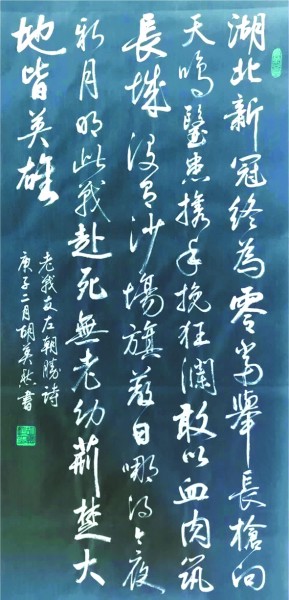 湖北新冠終為零當舉長槍向
天鳴醫患攜手挽狂瀾敢以血肉筑
長城没有沙場旗蔽日哪得今夜
新月明此戰赴死無老幼荊楚大
地皆英雄
老戰友左朝勝詩
庚子二月胡英書